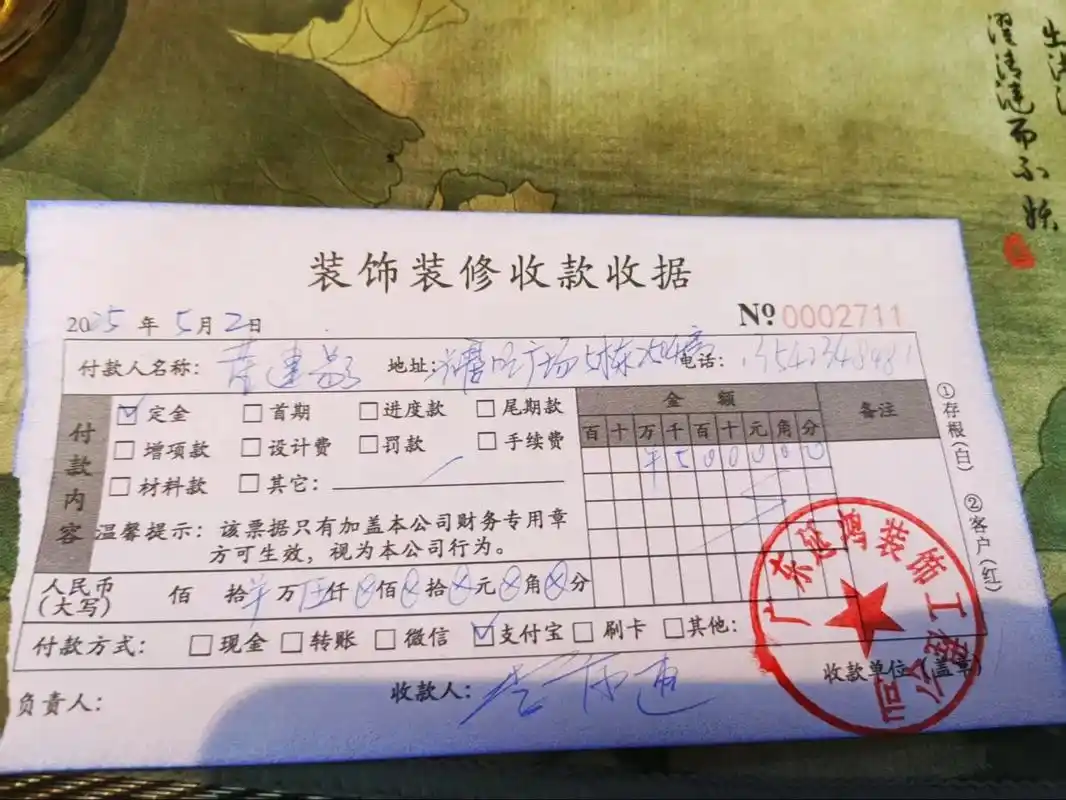 濯清涟而不妖
装饰装修收款收据
2025年5月2日
№ 0002711
付款人名称: 建 地址: 广场 栋 电话:
付款内容
☑ 定金 □ 首期 □ 进度款 □ 尾期款
□ 增项款 □ 设计费 □ 罚款 □ 手续费
□ 材料款 □ 其它:
温馨提示: 该票据只有加盖本公司财务专用章
方可生效,视为本公司行为。
金额
百 十 万 千 百 十 元 角 分
¥ 5 0 0 0 0 0
备注
①存根(白) ②客户(红)
人民币(大写) 佰 拾 万 伍仟 佰 拾 元 角 分
付款方式: □现金 □转账 □微信 ☑支付宝 □刷卡 □其他:
负责人:
收款人:
收款单位(盖章)
广东延鸿装饰工程有限公司